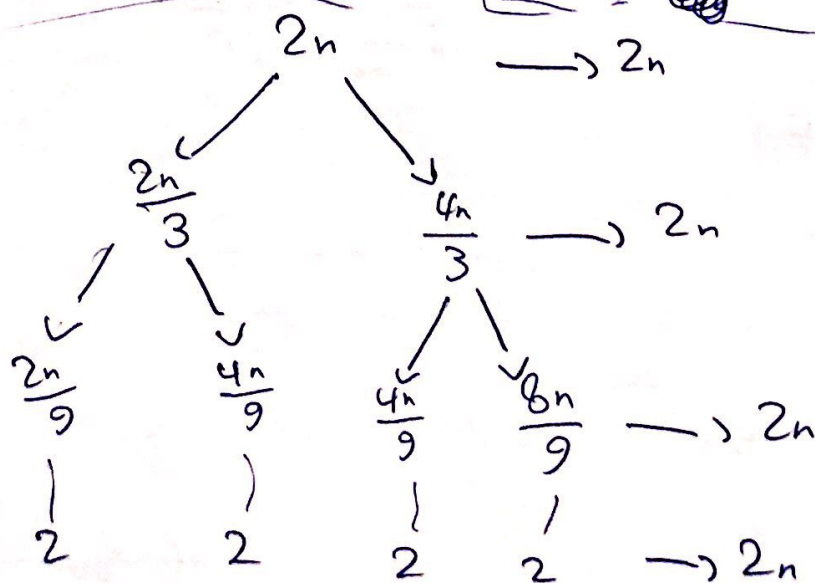 2n → 2n
2n/3 4n/3 → 2n
2n/9 4n/9 4n/9 8n/9 → 2n
2 2 2 2 → 2n